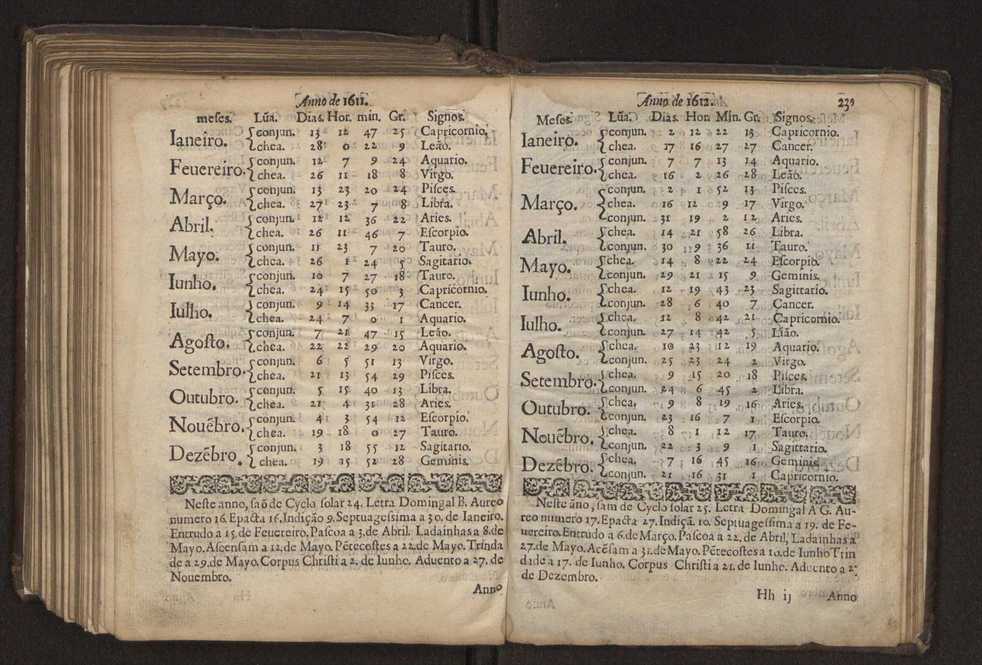 Anno de 1611.
meses. Lũa. Dias. Hor. min. Gr. Signos.
Ianeiro. conjun. 13 12 47 25 Capricornio.
chea. 28 0 22 9 Leão.
Feuereiro. conjun. 12 7 9 24 Aquario.
chea. 26 11 18 8 Virgo.
Março. conjun. 13 23 20 24 Pisces.
chea. 27 23 7 8 Libra.
Abril. conjun. 12 12 36 22 Aries.
chea. 26 11 46 7 Escorpio.
Mayo. conjun. 11 23 7 20 Tauro.
chea. 26 1 24 5 Sagitario.
Iunho. conjun. 10 7 27 18 Tauro.
chea. 24 15 50 3 Capricornio.
Iulho. conjun. 9 14 33 17 Cancer.
chea. 24 7 0 1 Aquario.
Agosto. conjun. 7 21 47 15 Leão.
chea. 22 22 29 20 Aquario.
Setembro. conjun. 6 5 51 13 Virgo.
chea. 21 13 54 29 Pisces.
Outubro. conjun. 5 15 40 13 Libra.
chea. 21 4 31 28 Aries.
Nouẽbro. conjun. 4 3 54 12 Escorpio.
chea. 19 18 0 27 Tauro.
Dezẽbro. conjun. 3 18 55 12 Sagitario.
chea. 19 25 52 28 Geminis.
Neste anno, saõ de Cyclo solar 24. Letra Domingal B. Aureo
numero 16. Epacta 16. Indição 9. Septuagessima a 30. de Ianeiro.
Entrudo a 15. de Feuereiro, Pascoa a 3. de Abril. Ladainhas a 8. de
Mayo. Ascensam a 12. de Mayo. Pẽtecostes a 22. de Mayo. Trinda
de a 29. de Mayo. Corpus Christi a 2. de Iunho. Aduento a 27. de
Nouembro.
Anno
Anno de 1612. 239
Meses. Lũa. Dias. Hor. Min. Gr. Signos.
Ianeiro. conjun. 2 12 22 13 Capricornio.
chea. 17 16 27 27 Cancer.
Feuereiro. conjun. 7 7 13 14 Aquario.
chea. 16 2 26 28 Leão.
Março. conjun. 2 1 52 13 Pisces.
chea. 16 12 9 17 Virgo.
conjun. 31 19 2 12 Aries.
Abril. chea. 14 21 58 26 Libra.
conjun. 30 9 36 11 Tauro.
Mayo. chea. 14 8 22 24 Escorpio.
conjun. 29 21 15 9 Geminis.
Iunho. chea. 12 19 43 23 Sagittario.
conjun. 28 6 40 7 Cancer.
Iulho. chea. 12 8 42 21 Capricornio.
conjun. 27 14 42 5 Lião.
Agosto. chea. 10 23 12 19 Aquario.
conjun. 25 23 24 2 Virgo.
Setembro. chea. 9 15 20 18 Pisces.
conjun. 24 6 45 2 Libra.
Outubro. chea. 9 8 19 16 Aries.
conjun. 23 16 7 1 Escorpio.
Nouẽbro. chea. 8 1 12 17 Tauro.
conjun. 22 3 9 1 Sagittario.
Dezẽbro. chea. 7 16 45 16 Geminis
conjun. 21 16 31 1 Capricornio.
Neste ãno, sam de Cyclo solar 25. Letra Domingal A G. Au-
reo numero 17. Epacta 27. Indiçã. 10. Septuagessima a 19. de Fe-
uereiro. Entrudo a 6. de Março. Pascoa a 22. de Abril, Ladainhas a
27. de Mayo. Acẽsam a 31. de Mayo. Pẽtecostes a 10. de Iunho Trin
dade a 17. de Iunho. Corpus Christi a 21. de Iunho. Aduento a 2.
de Dezembro.
Hh ij Anno